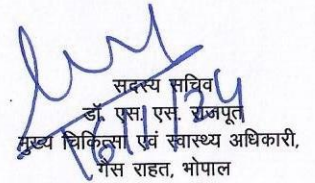 सदस्य सचिव
डॉ. एस. एस. राजपूत
मुख्य चिकित्सा एवं स्वास्थ्य अधिकारी,
गैस राहत, भोपाल